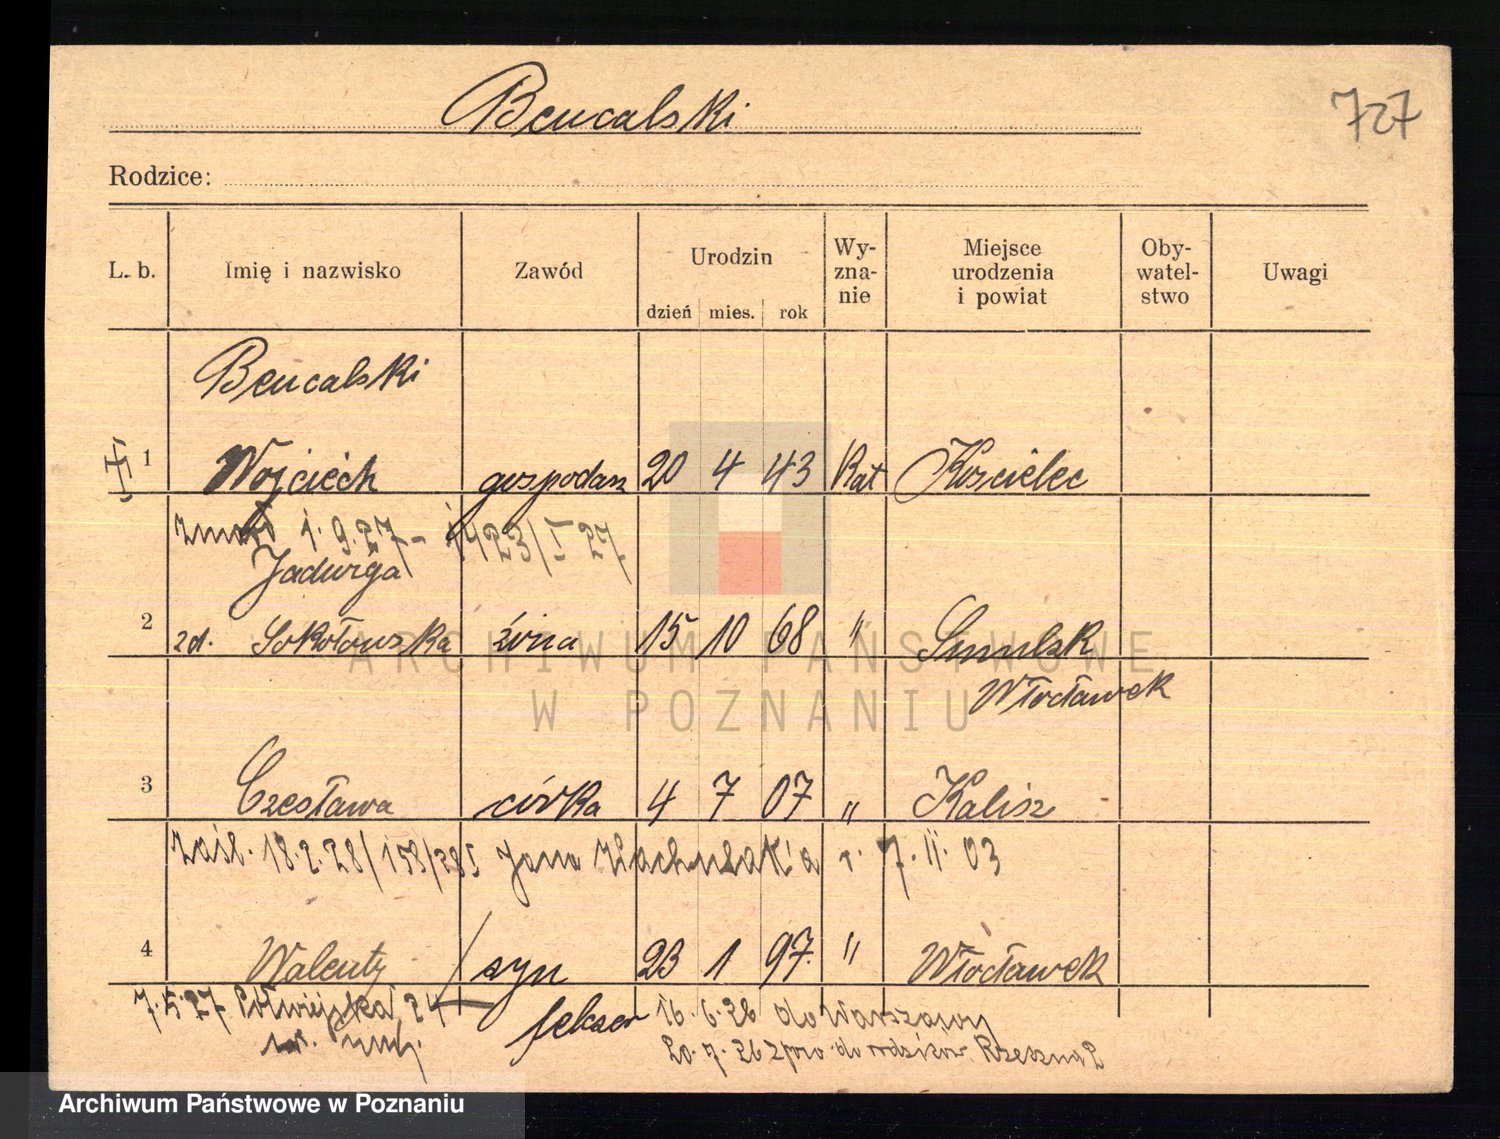 Bencalski
727
Rodzice:
L. b. Imię i nazwisko Zawód Urodzin dzień mies. rok Wy-zna-nie Miejsce urodzenia i powiat Oby-watel-stwo Uwagi
Bencalski
1 Wojciech gospodarz 20 4 43 Kat Kościelec
zmarł 1.9.27 - 1423/I 27
Jadwiga
2 zd. Sokołowska żona 15 10 68 " Smulsk
Włocławek
3 Czesława córka 4 7 07 " Kalisz
zaśl. 18.2.28/158/28I Jana r. 7.11.03
4 Walenty syn 23 1 97. " Włocławek
7.5.27 Półwiejska 24
16.6.26 do Warszawy
20.7.26 do rodziców
ARCHIWUM PAŃSTWOWE
W POZNANIU
Archiwum Państwowe w Poznaniu